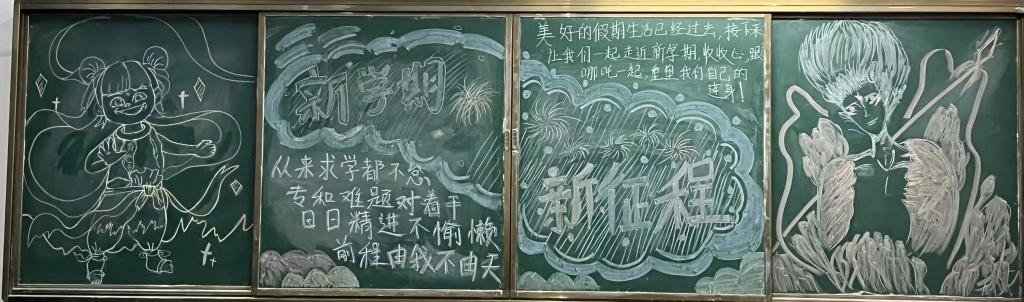 新学期
从来求学都不怠
专和难题对着干
日日精进不偷懒
前程由我不由天
美好的假期生活已经过去,接下来
让我们一起走近新学期收收心,跟
哪吒一起,重塑我们自己的
莲身!
新征程